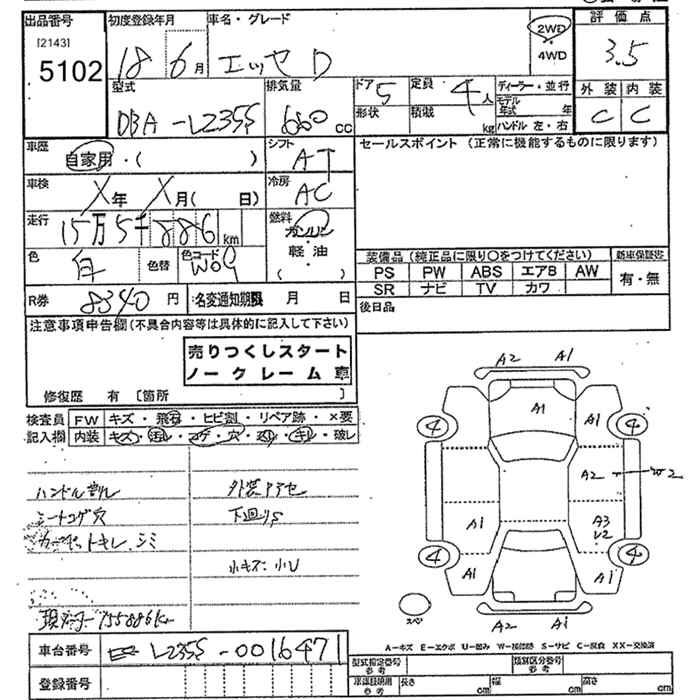 出品番号 初度登録年月 車名・グレード 2WD 評価点
[2143]
5102 18 6月 エッセ D ・4WD 3.5
型式 排気量 ドア 5 定員 4人 ディーラー・並行 外装 内装
DBA-L235S 660 cc 形状 積載 kg モデル年式 年 C C
ハンドル 左・右
車歴 自家用・( ) シフト AT セールスポイント (正常に機能するものに限ります)
車検 X年 X月( 日) 冷房 AC
走行 15万5千886km 燃料 ガソリン
軽油
( )
色 白 色替 色コード W09
装備品 (純正品に限り〇をつけてください) 新車保証書
PS PW ABS エアB AW 有・無
SR ナビ TV カワ
R券 8340円 名変通知期限 月 日 後日品
注意事項申告欄(不具合内容等は具体的に記入して下さい)
売りつくしスタート
ノークレーム車
修復歴 有 [箇所 ]
検査員 FW キズ・飛石・ヒビ割・リペア跡・×要
記入欄 内装 キズ・汚レ・コゲ・穴・スレ・キレ・破レ
ハンドルスレ 外装アテセ
シートコゲ穴 下廻りS
カーペットキレ、シミ
小キズ 小U
現メーター155886km
A2 A1
A1 A1
4 4
A2 W2
A1 A3
V2
4 4
A1 A1
スペア
A2 A1
A-キズ E-エクボ U-凹み W-補修跡 S-サビ C-腐食 XX-交換済
車台番号 L235S-0016471
型式指定番号 参考 類別区分番号 参考
登録番号 車庫証明用 参考 長さ cm 幅 cm 高さ cm